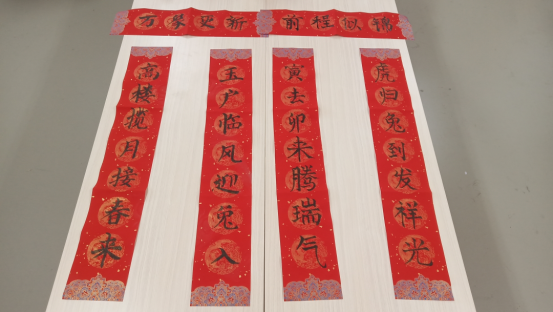 万象更新
前程似锦
高楼揽月接春来
玉户临风迎兔入
寅去卯来腾瑞气
虎归兔到发祥光